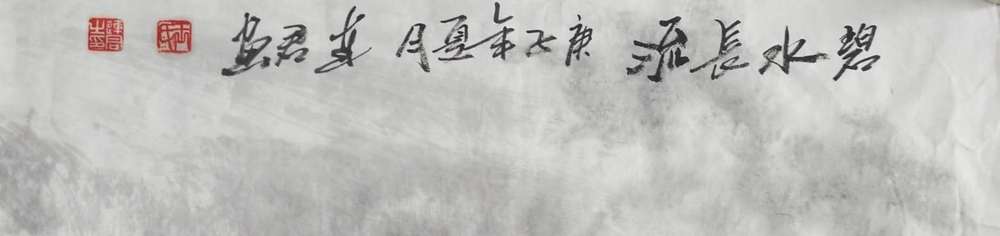 碧水長流 庚子年夏月 君画